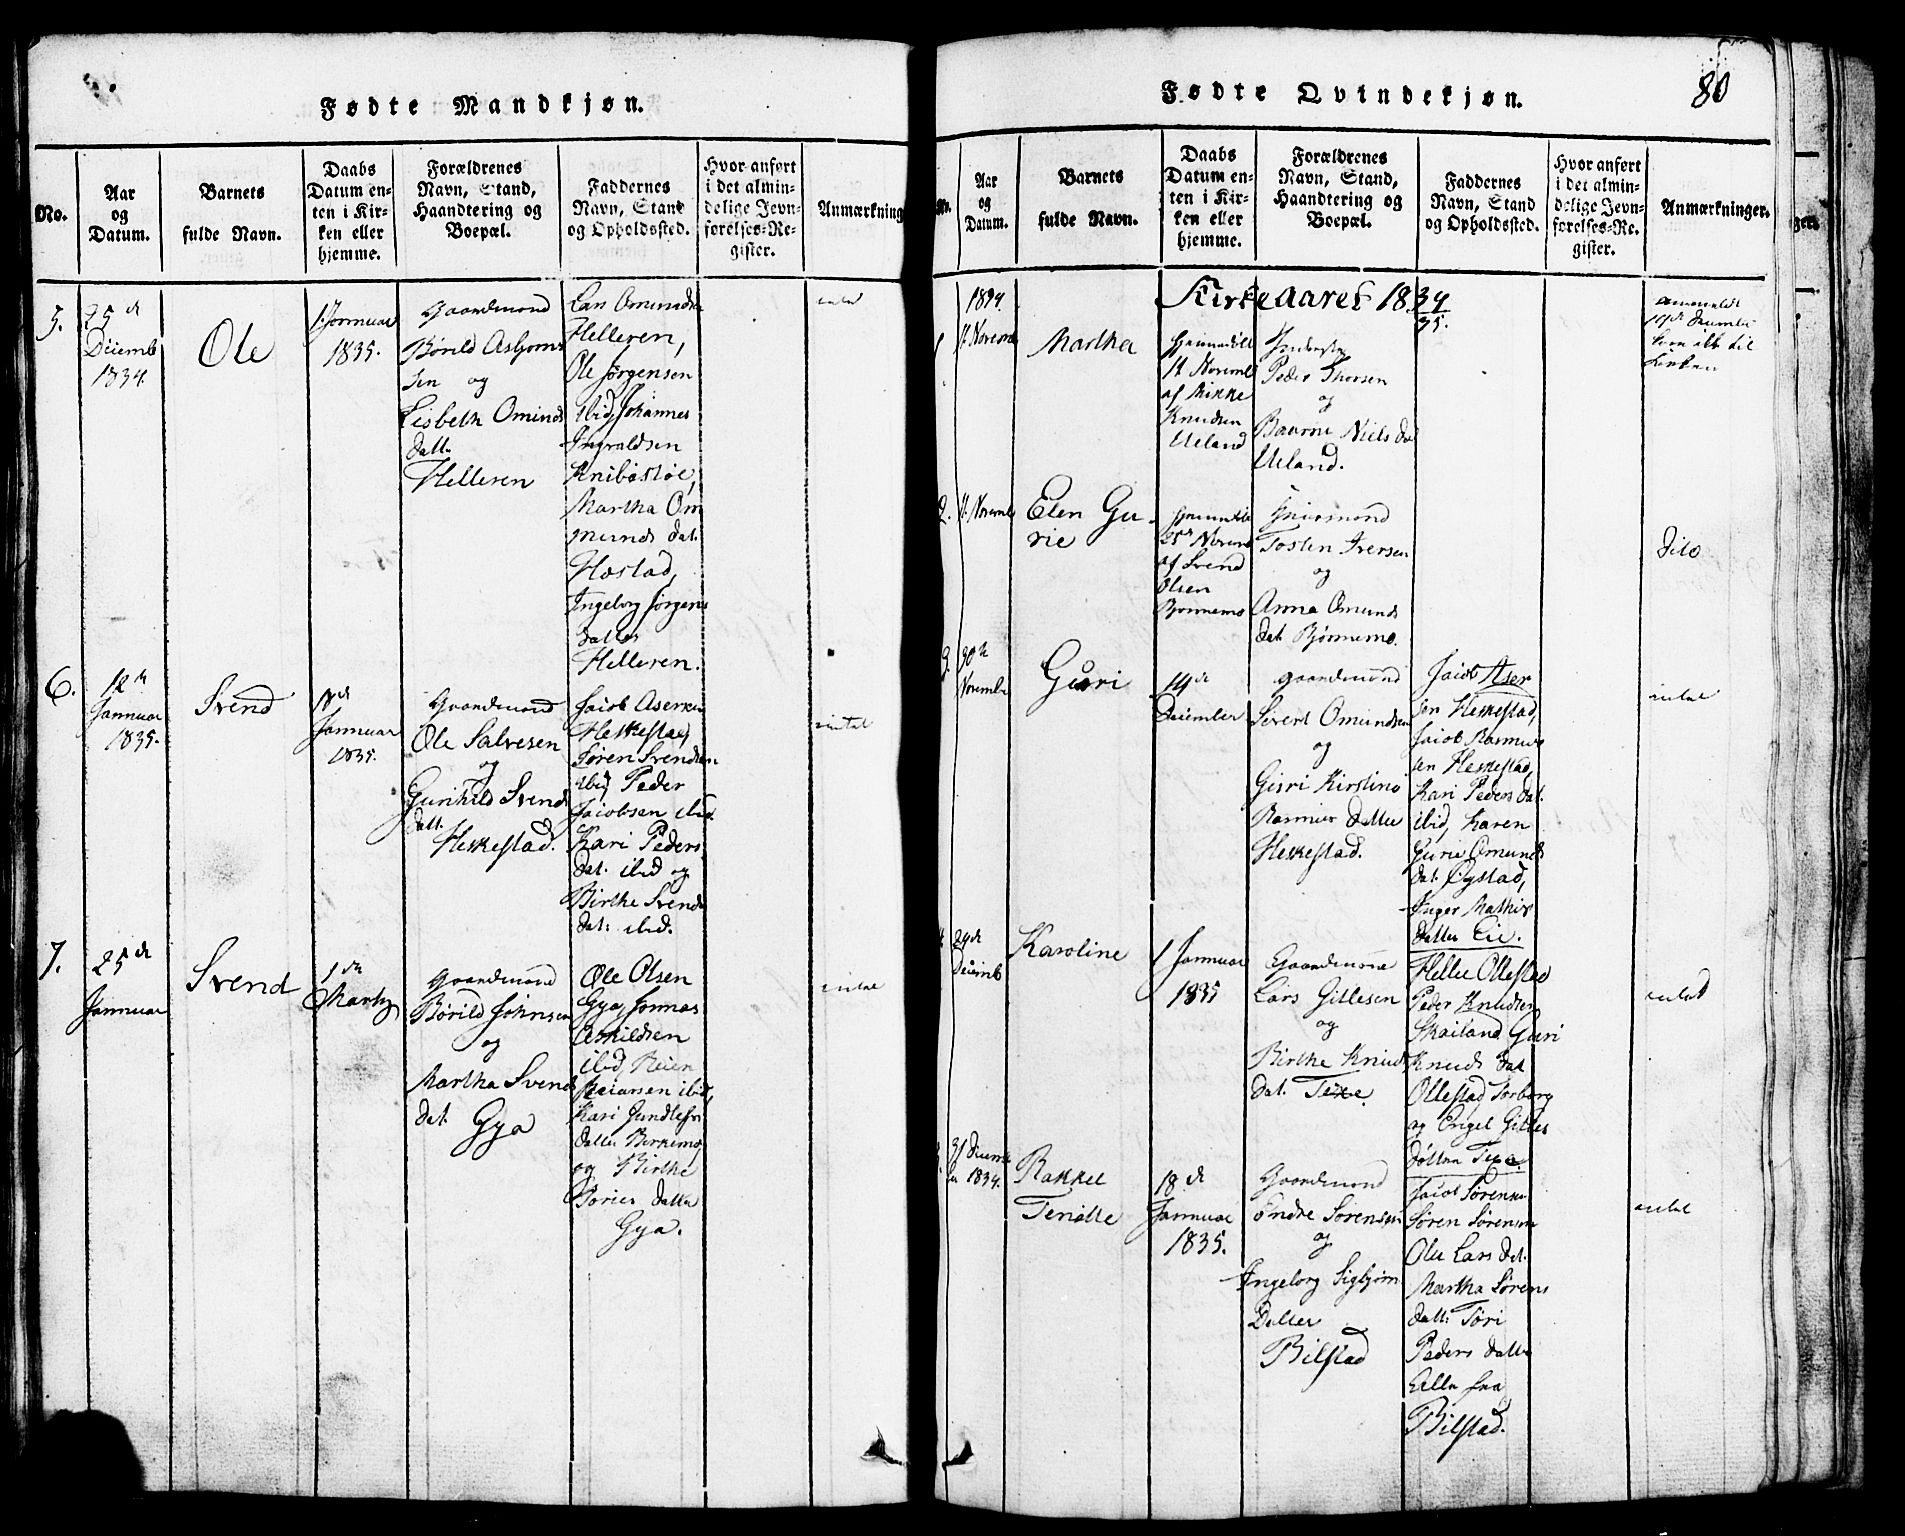 Fødte Mandkjøn.
No.
Aar
og
Datum.
Barnets
fulde Navn.
Daabs
Datum en-
ten i Kir-
ken eller
hjemme.
Forældrenes
Navn, Stand,
Haandtering og
Boepæl.
Faddernes
Navn, Stand
og Opholdssted.
Hvor anført
i det almin-
delige Jevn-
førelses-Re-
gister.
Anmærkning
5.
25 de
Decemb
1834.
Ole
1. Januar
1835.
Gaardmand
Børild Asbjørns
sen og
Lisbeth Omunds
datt.
Helleren
Lars Omundsen
Helleren,
Ole Jørgensen
ibid, Johannes
Ingvaldsen
Martha Om
munds dat.
Hostad,
Ingeborg Jørgens
datter
Helleren.
intet
6.
12 te
Januar
1835.
Svend
18 de
Januar
1835.
Gaardmand
Ole Salvesen
og
Gunhild Svends
datt.
Heskestad.
Jacob Asersen
Heskestad,
Søren Svendsen
ibid, Peder
Jacobsen ibid.
Kari Peders
dat. ibid og
Birthe Svends
dat. ibid.
intet
7.
25 de
Januar
Svend
1 ste
Marty
Gaardmand
Børild Johnsen
og
Martha Svends
dat. Gya
Ole Olsen
Gya, Jonnas
Askildsen
ibid, Reier
Reiarsen ibid,
Kari
datter
og Birthe
Tories datter
Gya.
intet
80
Fødte Qvindekjøn.
No.
Aar
og
Datum.
Barnets
fulde Navn.
Daabs
Datum en-
ten i Kir-
ken eller
hjemme.
Forældrenes
Navn, Stand,
Haandtering og
Boepæl.
Faddernes
Navn, Stand
og Opholdssted.
Hvor anført
i det almin-
delige Jevn-
førelses-Re-
gister.
Anmærkninger.
Kirkeaaret 1834/35.
1834.
1
11. Novemb
Martha
hjemmedøbt
11 Novemb
af Mikke
Knudsen
Ueland
Inderste
Peder Thorsen
og
Niels dat
Ueland.
anmeldt
14de Decembr
kom ikke til
kirken
2.
11. Novemb
Elen Gu-
rie
hjemmedøbt
25de Novemb
af Svend
Olsen
Bjønnemo
Tosten Iversen
og
Anna Omunds
dat. Bjønnemo.
dito
3.
30 te
Novembr
Guri
14 de
December
Gaardmand
Sivert Omundsen
og
Guri Kirstine
Rasmus datter
Heskestad.
Jacob Aser
sen Heskestad,
Jacob Rasmus
sen Heskestad,
Kari Peders dat.
ibid, Karen
Gurie Omunds
dat. Øystad,
Inger Mathis
datter Eie.
intet
4
24 de
Decemb
Karoline
1 Januar
1835
Gaardmand
Lars Gitlesen
og
Birthe Knuds
dat. Texe.
Helle Ollestad
Peder Knudsen
Skailand, Guri
Knuds dat
Ollestad Torborg
og Engel Gitles
døttre Texe.
intet
5
31 Decem
ber 1834.
Rakkel
Tenotte
18 de
Januar
1835.
Gaardmand
Endre Sørensen
og
Ingeborg Sigbjørn
Datter
Bilstad
Jacob Sørensen
Søren Sørensen
Ole Lars dat.
Martha Sørens
datt: Tori
Peders datter
alle fra
Bilstad.
intet